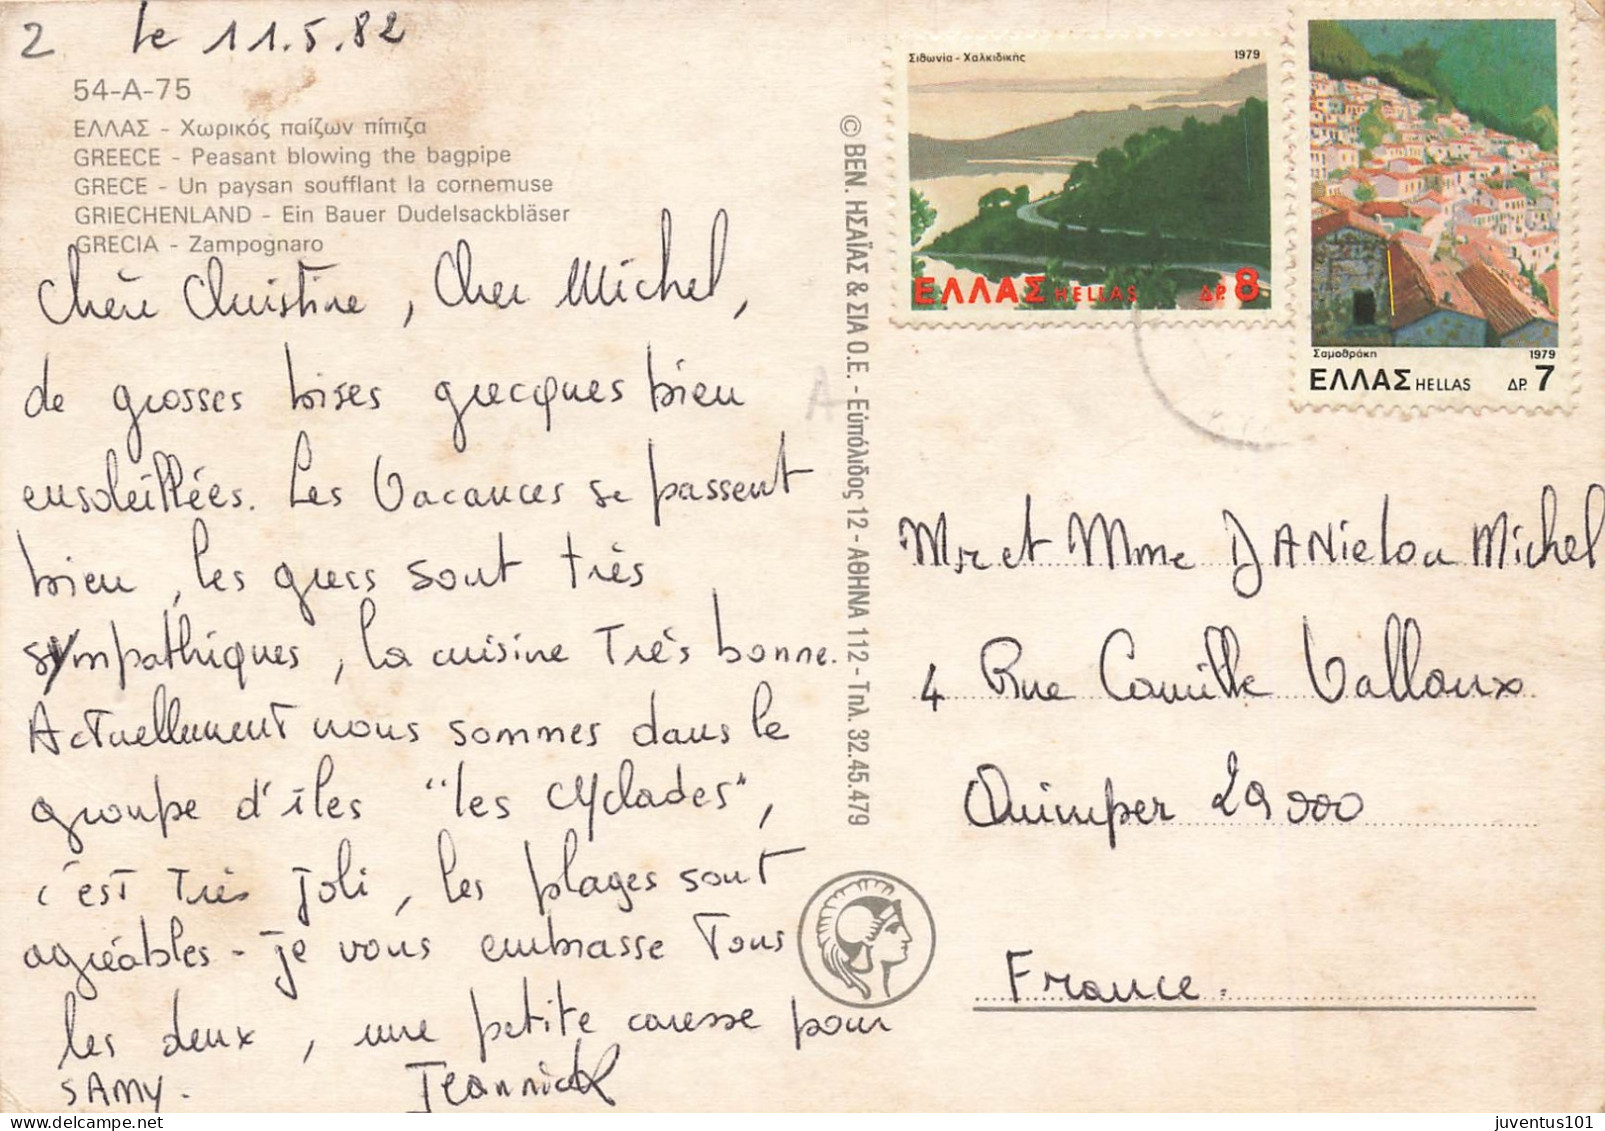 2 le 11.5.82
54-A-75
ΕΛΛΑΣ - Χωρικός παίζων πίπιζα
GREECE - Peasant blowing the bagpipe
GRECE - Un paysan soufflant la cornemuse
GRIECHENLAND - Ein Bauer Dudelsackbläser
GRECIA - Zampognaro
Chère Christine, Cher Michel,
de grosses bises grecques bien
ensoleillées. Les Vacances se passent
bien, les grecs sont très
sympathiques, la cuisine Très bonne.
Actuellement nous sommes dans le
groupe d'îles "les cyclades",
c'est Très joli, les plages sont
agréables - je vous embrasse Tous
les deux, une petite caresse pour
SAMY. Jeannick
© ΒΕΝ. ΗΣΑΪΑΣ & ΣΙΑ Ο.Ε. - Εὐπόλιδος 12 - ΑΘΗΝΑ 112 - Τηλ. 32.45.479
Σιθωνία - Χαλκιδικής 1979
ΕΛΛΑΣ HELLAS ΔΡ. 8
Σαμοθράκη 1979
ΕΛΛΑΣ HELLAS ΔΡ. 7
A
Mr et Mme DANielou Michel
4 Rue Camille Vallaux
Quimper 29000
France.
juventus101